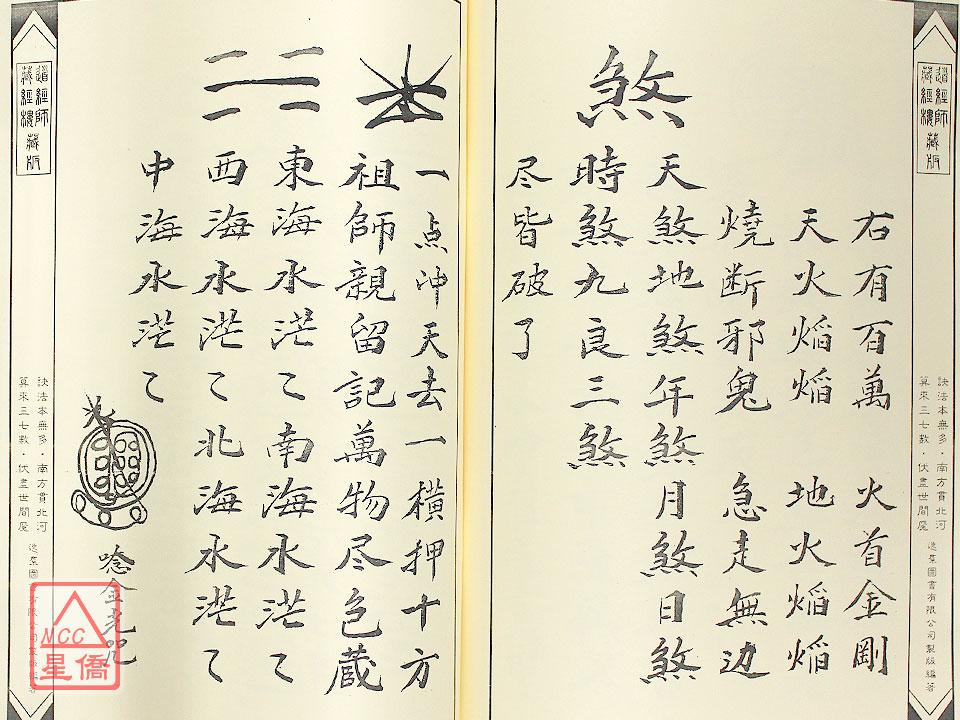 右有百萬 火首金剛
天火焰焰 地火焰焰
燒断邪鬼 急走無边
天煞地煞年煞月煞日煞
煞時煞九良三煞
尽皆破了
一点冲天去一横押十方
祖師親留記萬物尽包蔵
東海水茫〻南海水茫〻
西海水茫〻北海水茫〻
中海水茫〻
唸金光咒
道經師
藏經樓
藏版
訣法本無多·南方貫北河
算來三七數·伏盡世間魔
逸群圖書有限公司製版編著
道經師
藏經樓
藏版
訣法本無多·南方貫北河
算來三七數·伏盡世間魔
逸群圖書有限公司製版編著
NCC
星僑